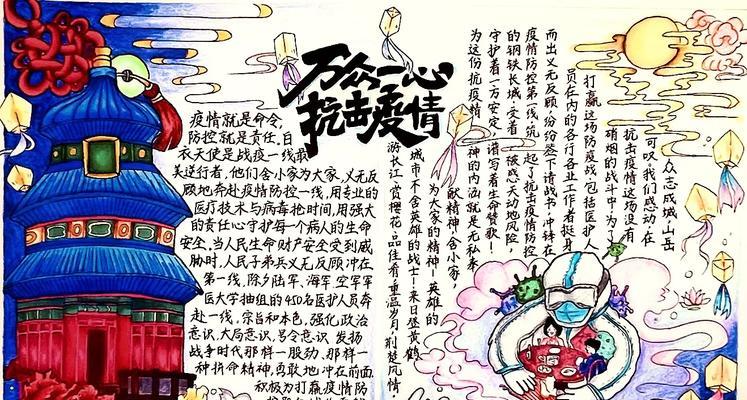 万众一心
抗击疫情
疫情就是命令,
防控就是责任,白
衣天使是战疫一线最
美逆行者,他们舍小家为大家,义无反
顾地奔赴疫情防控一线,用专业的
医疗技术与病毒抢时间,用强大
的责任心守护每一个病人的生命
安全,当人民生命财产安全受到威
胁时,人民子弟兵义无反顾冲在
第一线,除夕陆军、海军、空军军
医大学抽组的450名医护人员奔
赴一线,宗旨和本色,强化政治
意识,大局意识,号令意识 发扬
战争时代那样一股劲,那样一
种拼命精神,勇敢地冲在前面
积极为打赢疫情防
众志成城,山岳
可叹,我们感动,在
抗击疫情这场没有
硝烟的战斗中,为了
打赢这场防疫战,包括医护人
员在内的各行各业工作者挺身
而出义无反顾,纷纷签下请战书,冲锋在
疫情防控第一线,筑起了抗击疫情防控
的钢铁长城,受着被感天动地风险,
守护着一方安定,谱写着生命赞歌!
为这份抗疫情神的内涵就是无私奉
献精神,舍小家,
为大家的精神!英雄的
城市不舍英雄的战士!来日登黄鹤,
游长江,赏樱花,品佳肴,重温岁月,荆楚风情.